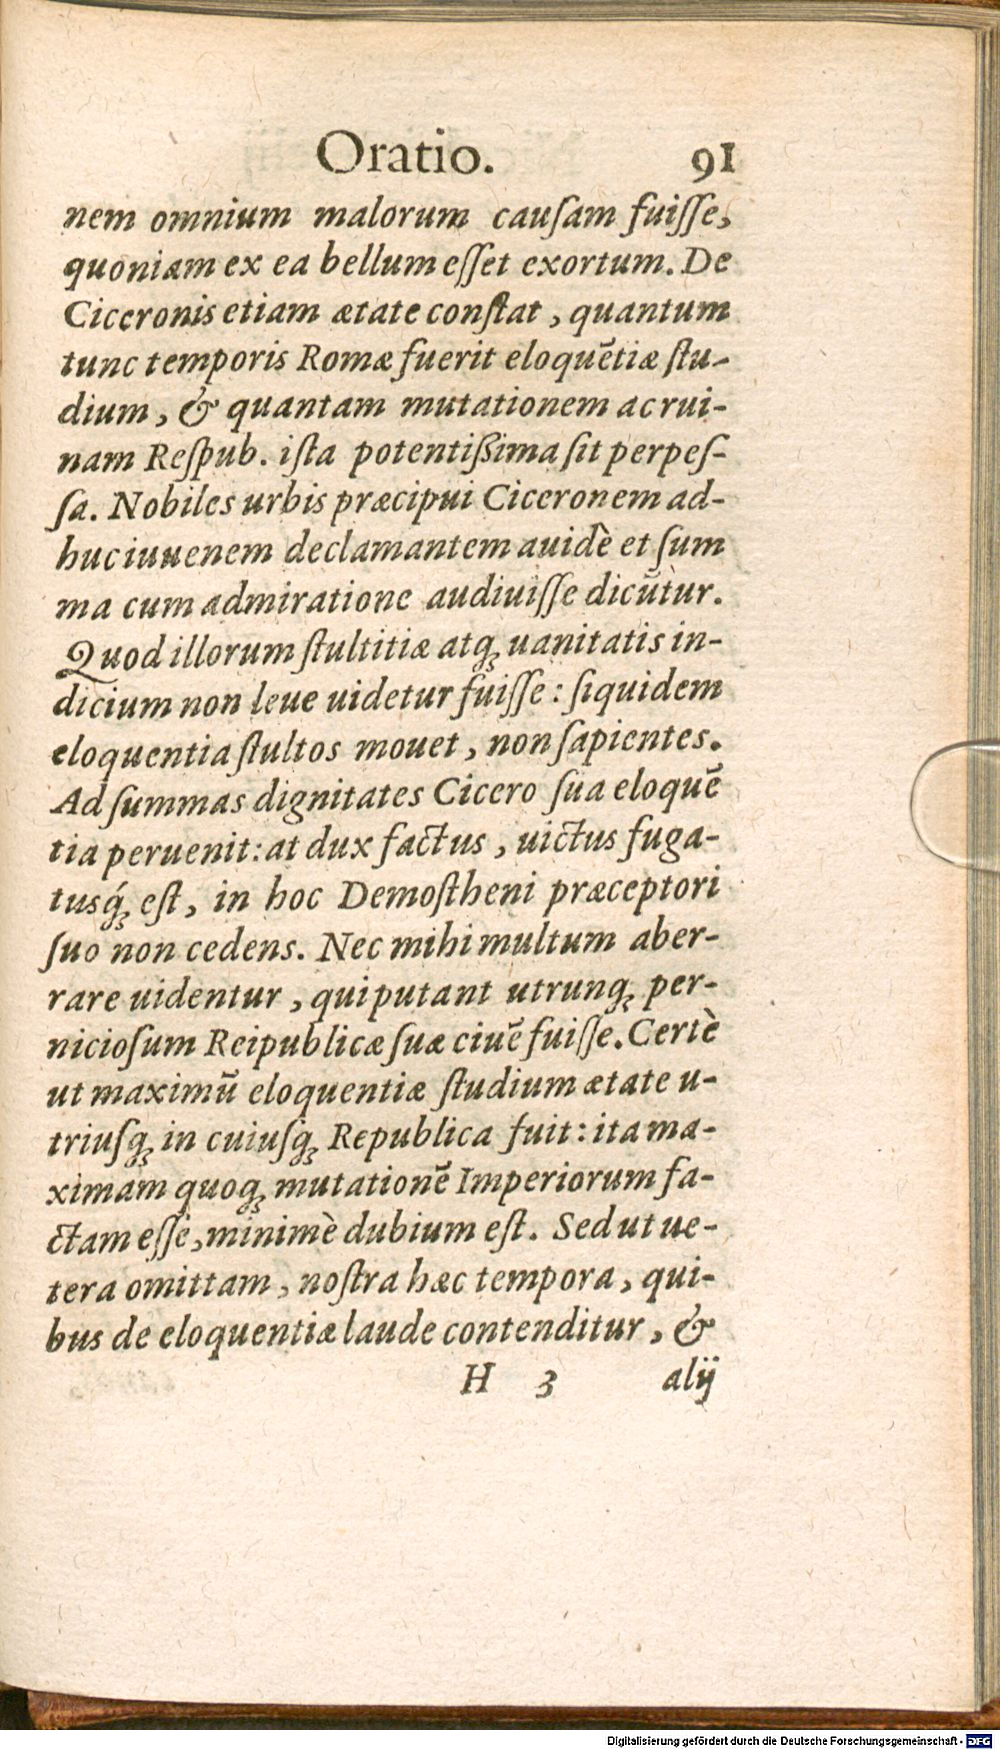 Oratio. 91
nem omnium malorum cauſam fuiſſe,
quoniam ex ea bellum eſſet exortum. De
Ciceronis etiam ætate conſtat, quantum
tunc temporis Romæ fuerit eloquẽtiæ ſtu-
dium, & quantam mutationem ac rui-
nam Reſpub. iſta potentiſsima ſit perpeſ-
ſa. Nobiles urbis præcipui Ciceronem ad-
huc iuuenem declamantem auidè et ſum
ma cum admiratione audiuiſſe dicũtur.
Quod illorum ſtultitiæ atq́; uanitatis in-
dicium non leue uidetur fuiſſe: ſiquidem
eloquentia ſtultos mouet, non ſapientes.
Ad ſummas dignitates Cicero ſua eloquẽ
tia peruenit: at dux factus, uictus fuga-
tusq́; eſt, in hoc Demoſtheni præceptori
ſuo non cedens. Nec mihi multum aber-
rare uidentur, qui putant utrunq; per-
nicioſum Reipublicæ ſuæ ciuẽ fuiſſe. Certè
ut maximũ eloquentiæ ſtudium ætate u-
triuſq; in cuiuſq; Republica fuit: ita ma-
ximam quoq; mutationẽ Imperiorum fa-
ctam eſſe, minimè dubium eſt. Sed ut ue-
tera omittam, noſtra hæc tempora, qui-
bus de eloquentiæ laude contenditur, &
H 3 alij
Digitalisierung gefördert durch die Deutsche Forschungsgemeinschaft - DFG